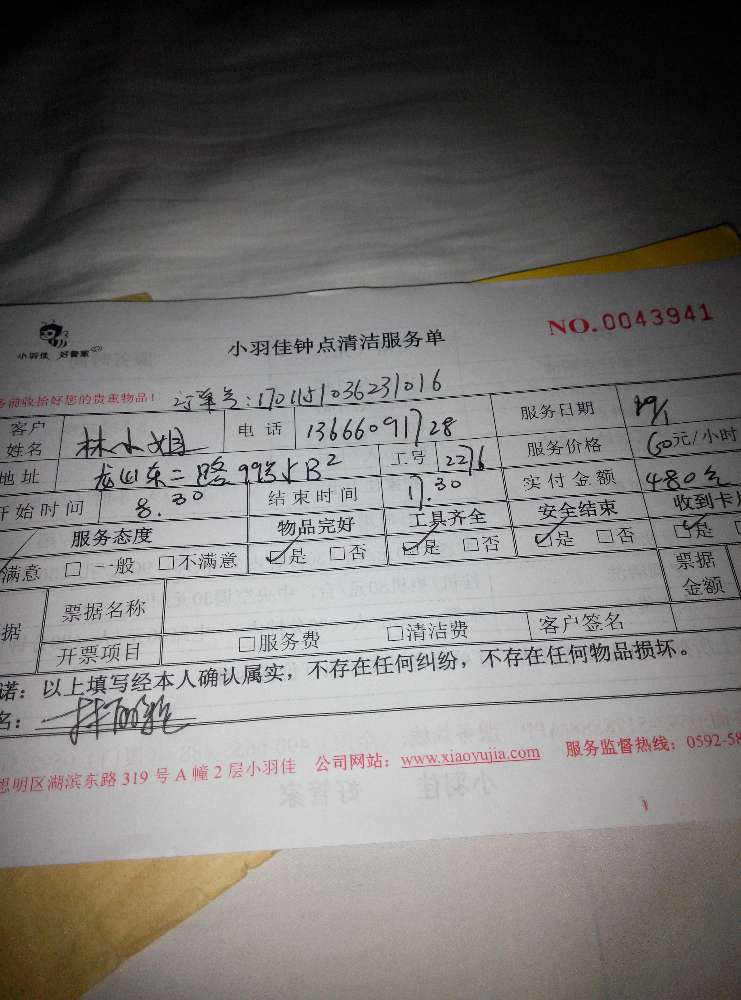 小羽佳 好管家
小羽佳钟点清洁服务单
NO.0043941
前收拾好您的贵重物品!
订单号:1701151036231016
客户姓名 林小姐 电话 13666091728 服务日期
地址 龙山东二路 工号 2276 服务价格 60元/小时
开始时间 8.30 结束时间 17.30 实付金额 480元
服务态度 物品完好 工具齐全 安全结束 收到卡
满意 □一般 □不满意 ☑是 □否 ☑是 □否 ☑是 □否 ☑是
据 票据名称 票据金额
开票项目 □服务费 □清洁费 客户签名
诺:以上填写经本人确认属实,不存在任何纠纷,不存在任何物品损坏。
名:
思明区湖滨东路319号A幢2层小羽佳 公司网站:www.xiaoyujia.com 服务监督热线:0592-58